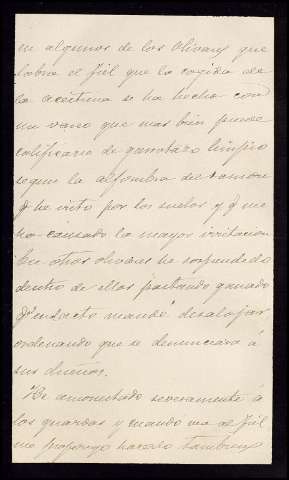 en algunos de los Olivares que
labra el fiel que la cogida de
la aceituna se ha hecho con
un vareo que mas bien puede
calificarse de garrotazo limpio
segun la alfombra de ramon
q he visto por los suelos y q me
ha causado la mayor irritacion
En otros olivares he sorprendido
dentro de ellos pastando ganado
q en el acto mandé desalojar
ordenando que se denunciara á
sus dueños.
He amonestado severamente á
los guardas y cuando vea al fiel
me propongo hacerlo tambien